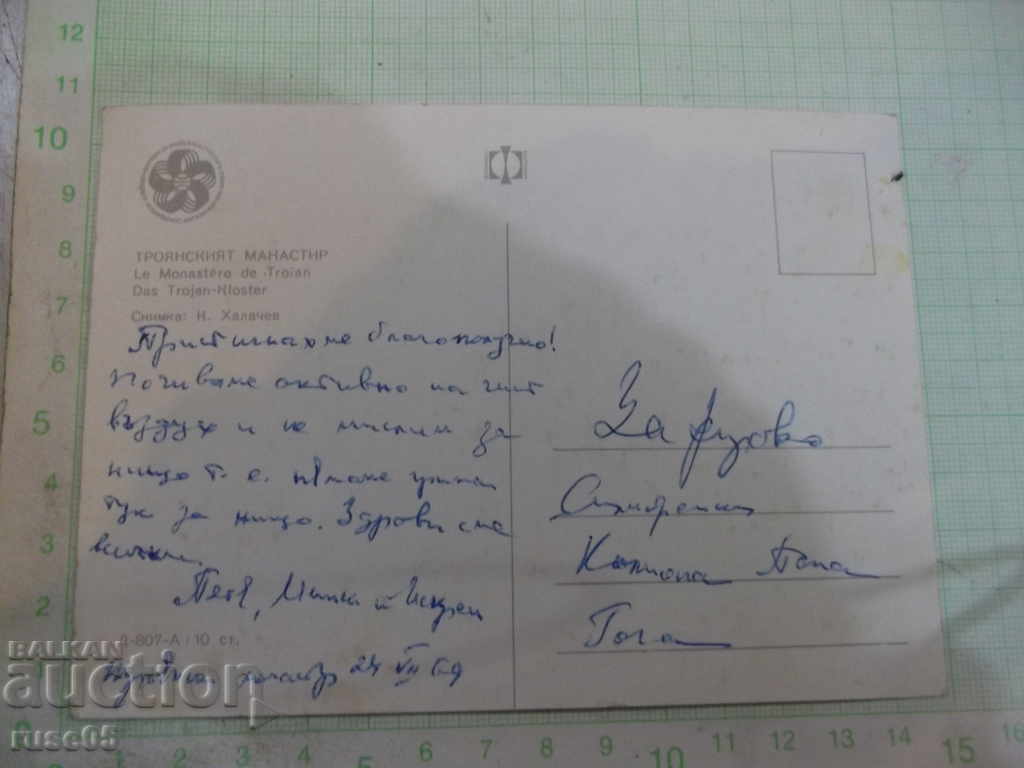 ТРОЯНСКИЯТ МАНАСТИР
Le Monastère de Troian
Das Trojan-Kloster
Снимка: Н. Халачев
Пристигнахме благополучно!
Почиваме активно на чист
въздух и не мислим за
нищо т. е. нямаме
тук за нищо. Здрави сме
всички.
Петя, Минка и Искрен
Д-807-А / 10 ст.
24 VII 69
За
Гога
BALKAN
auction
ruse05
12
11
10
9
8
7
6
5
4
3
2
1
0
1 2 3 4 5 6 7 8 9 10 11 12 13 14 15 16